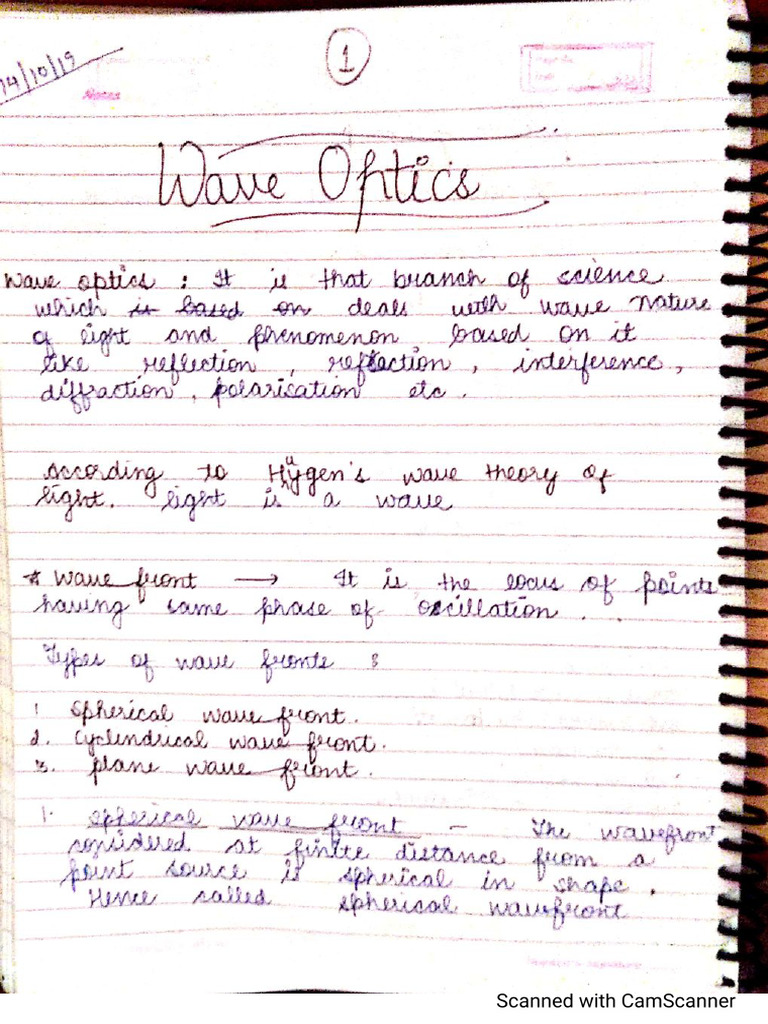 14/10/19
1
Wave Optics
Wave optics : It is that branch of science
which is based on deals with wave nature
of light and phenomenon based on it
like reflection , refraction , interference ,
diffraction , polarisation etc .
According to Huygen's wave theory of
light. light is a wave
* Wave front → It is the locus of points
having same phase of oscillation .
Types of wave fronts :
1 Spherical wave front.
2. Cyclendrical wave front.
3. plane wave front.
1. Spherical wave front - The wavefront
considered at finite distance from a
point source is spherical in shape .
Hence called spherical wavefront
Scanned with CamScanner